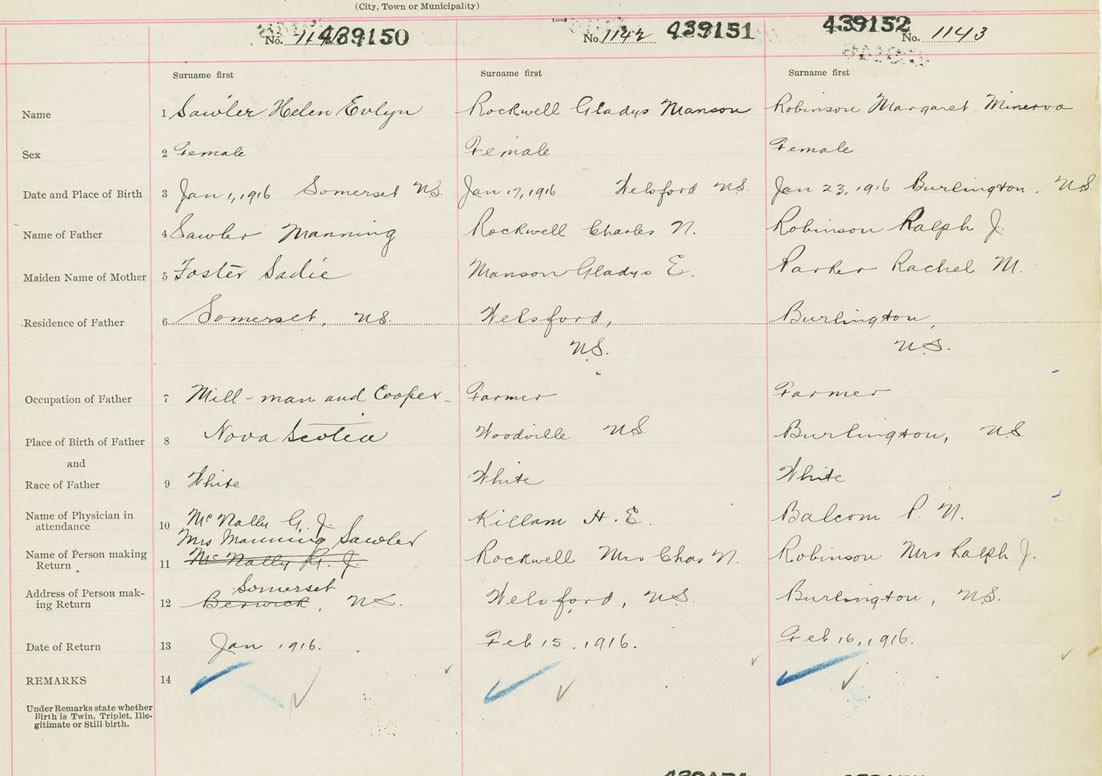 (City, Town or Municipality)
No. 439150 No. 1142 439151 439152 No. 1143
Surname first Surname first Surname first
Name 1 Sawler Helen Evlyn Rockwell Gladys Manson Robinson Margaret Minerva
Sex 2 Female Female Female
Date and Place of Birth 3 Jan 1, 1916 Somerset N.S. Jan 17, 1916 Welsford N.S. Jan 23, 1916 Burlington, N.S.
Name of Father 4 Sawler Manning Rockwell Charles N. Robinson Ralph J.
Maiden Name of Mother 5 Foster Sadie Manson Gladys E. Parker Rachel M.
Residence of Father 6 Somerset, N.S. Welsford, Burlington,
N.S. N.S.
Occupation of Father 7 Mill-man and Cooper Farmer Farmer
Place of Birth of Father 8 Nova Scotia Woodville N.S. Burlington, N.S.
and
Race of Father 9 White White White
Name of Physician in
attendance 10 McNally G. J. Killam H. E. Balcom P. N.
Mrs Manning Sawler
Name of Person making
Return 11 McNally G. J. Rockwell Mrs Chas N. Robinson Mrs Ralph J.
Somerset
Address of Person mak-
ing Return 12 Berwick, N.S. Welsford, N.S. Burlington, N.S.
Date of Return 13 Jan 1916. Feb 15, 1916. Feb 16, 1916.
REMARKS 14
Under Remarks state whether
Birth is Twin, Triplet, Ille-
gitimate or Still birth.